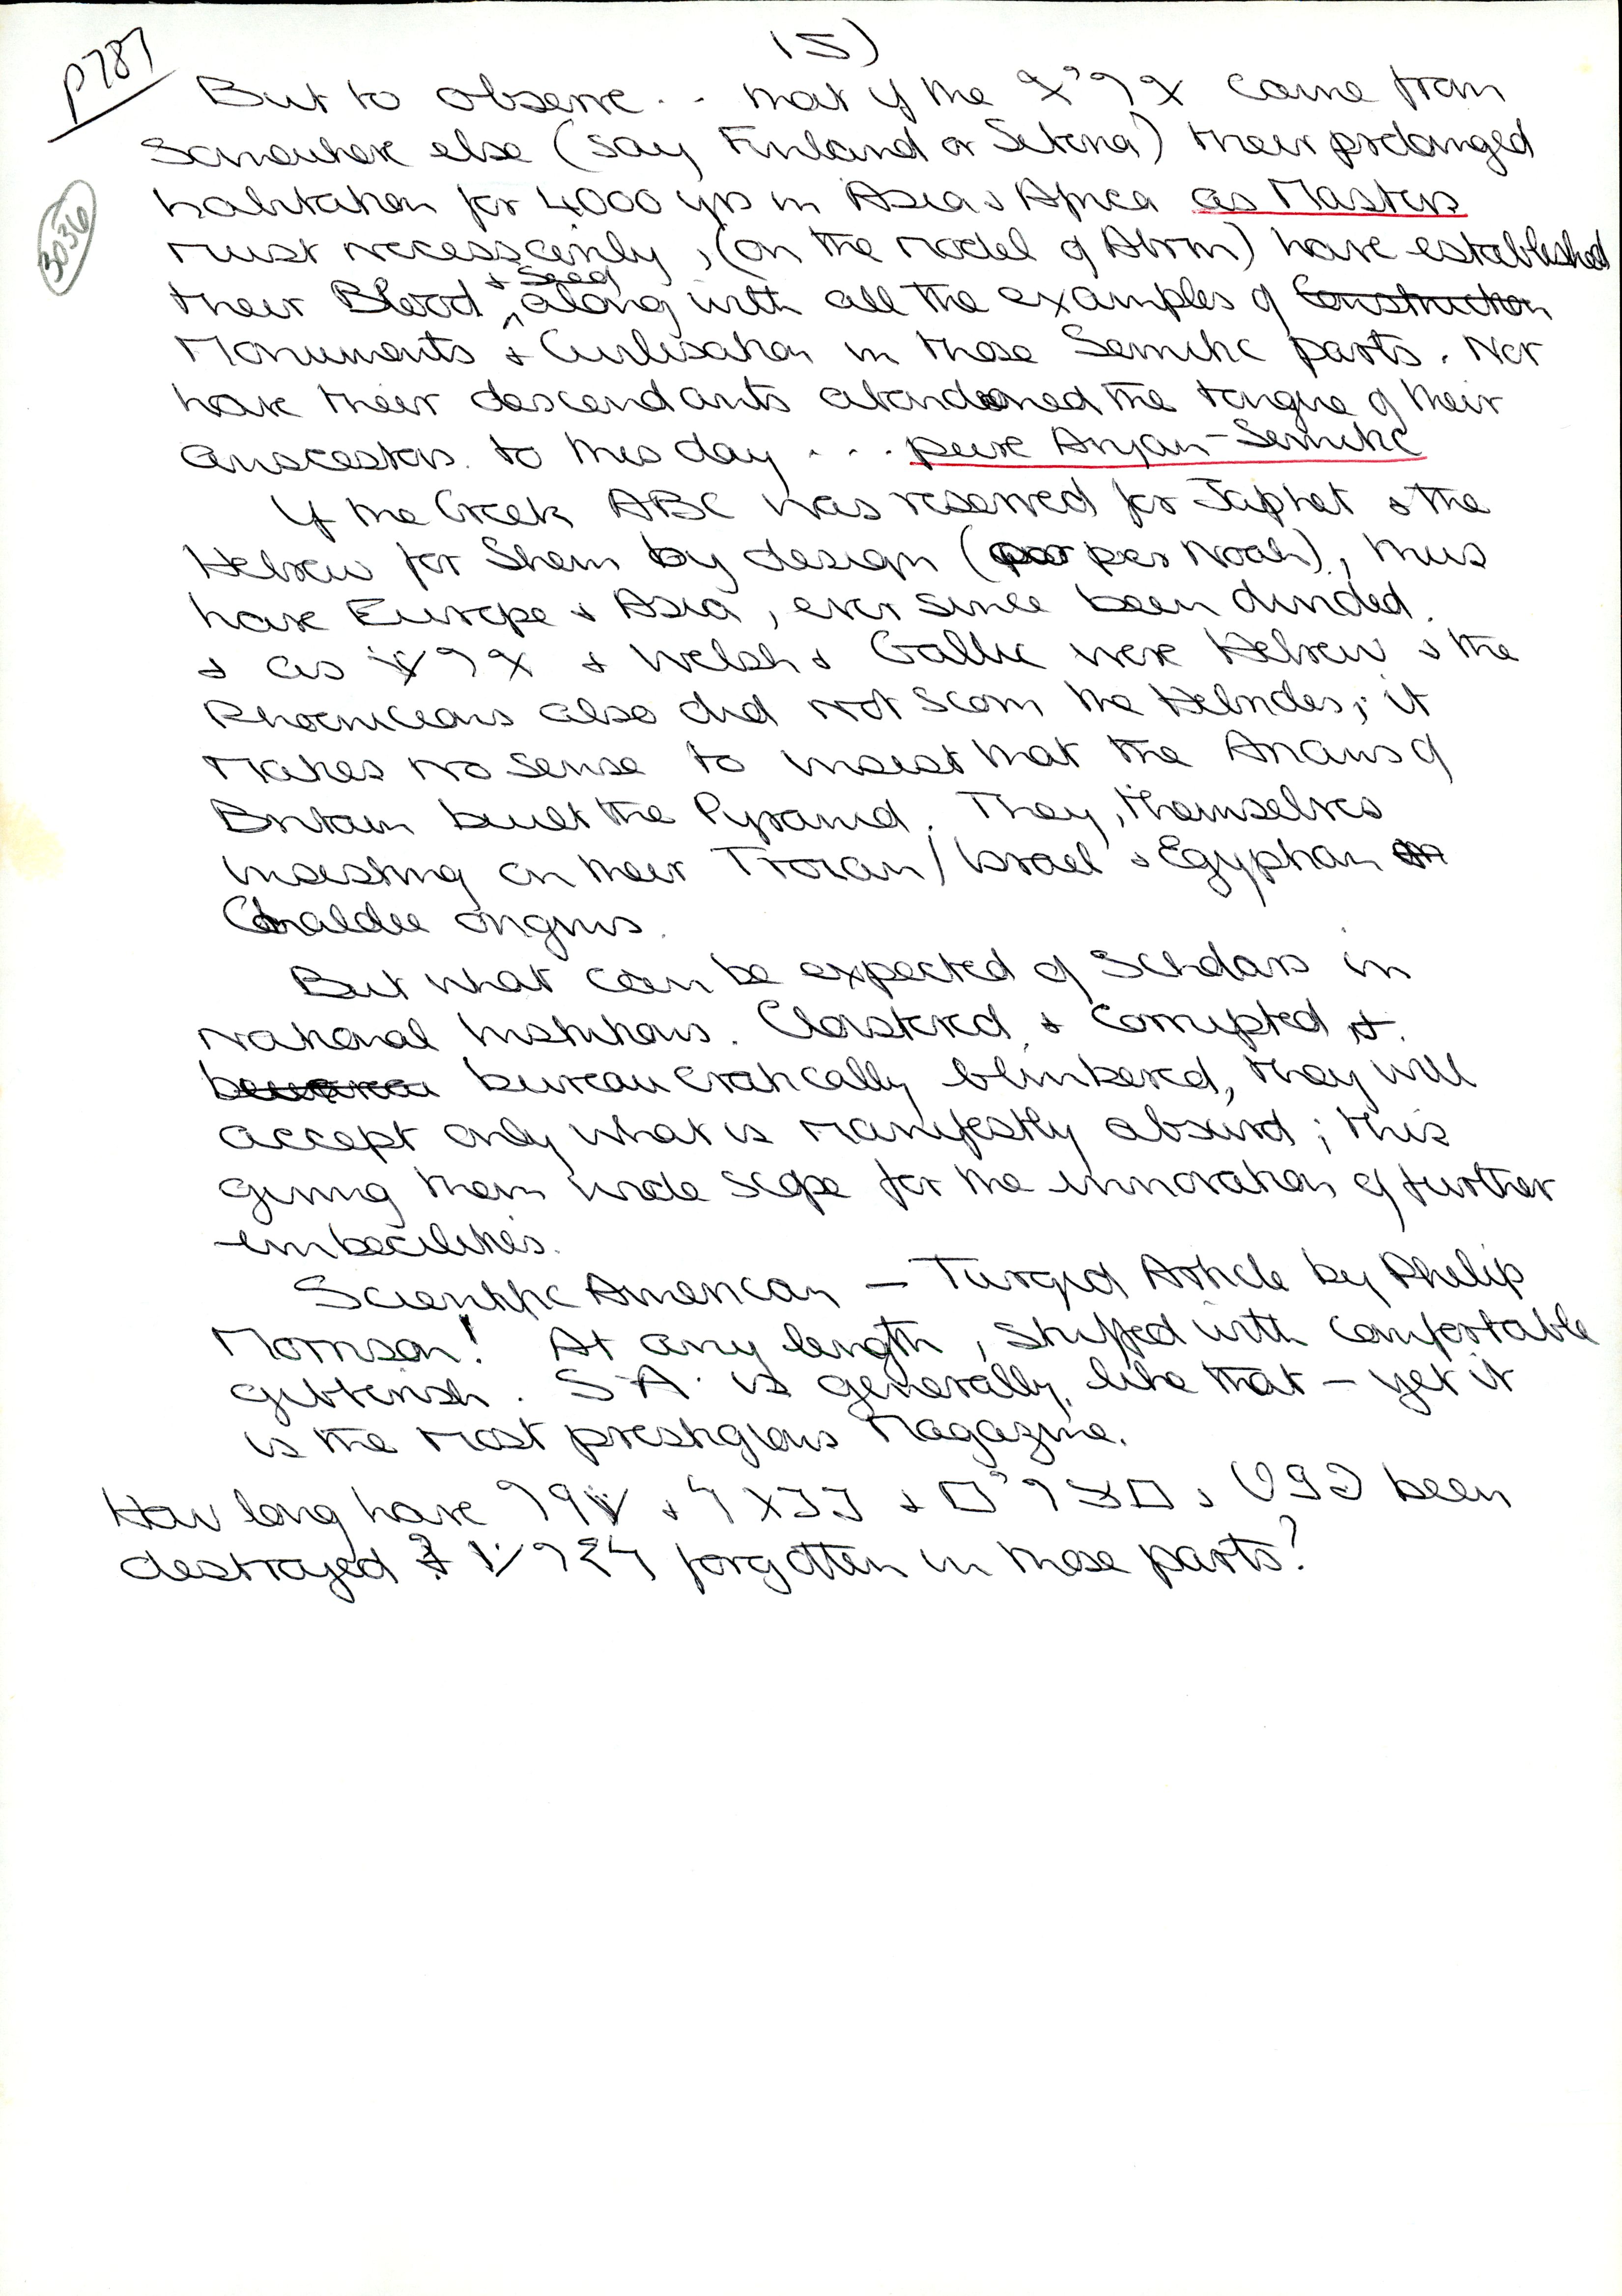 15)
P787
3036
But to observe .. that if the א'רא came from
Somewhere else (say Finland or Siberia) their prolonged
habitation for 4000 yrs in Asia & Africa as Masters
must necesscerily, (on the model of Abrm) have established
their Blood & Seed along with all the examples of Construction
Monuments & Civlisation in those Semitic parts. Nor
have their descendants abandoned the tongue of their
anscestors. to this day .... pure Aryan-Semitic
If the Greek ABC was reserved for Japhet & the
Hebrew for Shem by design (per Noah), thus
have Europe & Asia, ever since been divided.
& as & Welsh & Gallic were Hebrew & the
Phoenicians also did not scorn the Hebrides; it
makes no sense to insist that the Arians of
Britain built the Pyramid. They, themselves
insisting on their Trojan/Israel & Egyptian
Chaldee origins.
But what can be expected of Scholars in
National Institutions. Cloistered & corrupted &
bureaucratically blinkered, they will
accept only what is manifestly absurd; this
giving them wide scope for the innovation of further
imbecilities.
Scientific American — Turgid Article by Philip
Morrison! At any length, stuffed with comfortable
gibberish. S A. is generally, like that – yet it
is the most prestigious Magazine.
How long have & & & been
destroyed & forgotten in these parts?